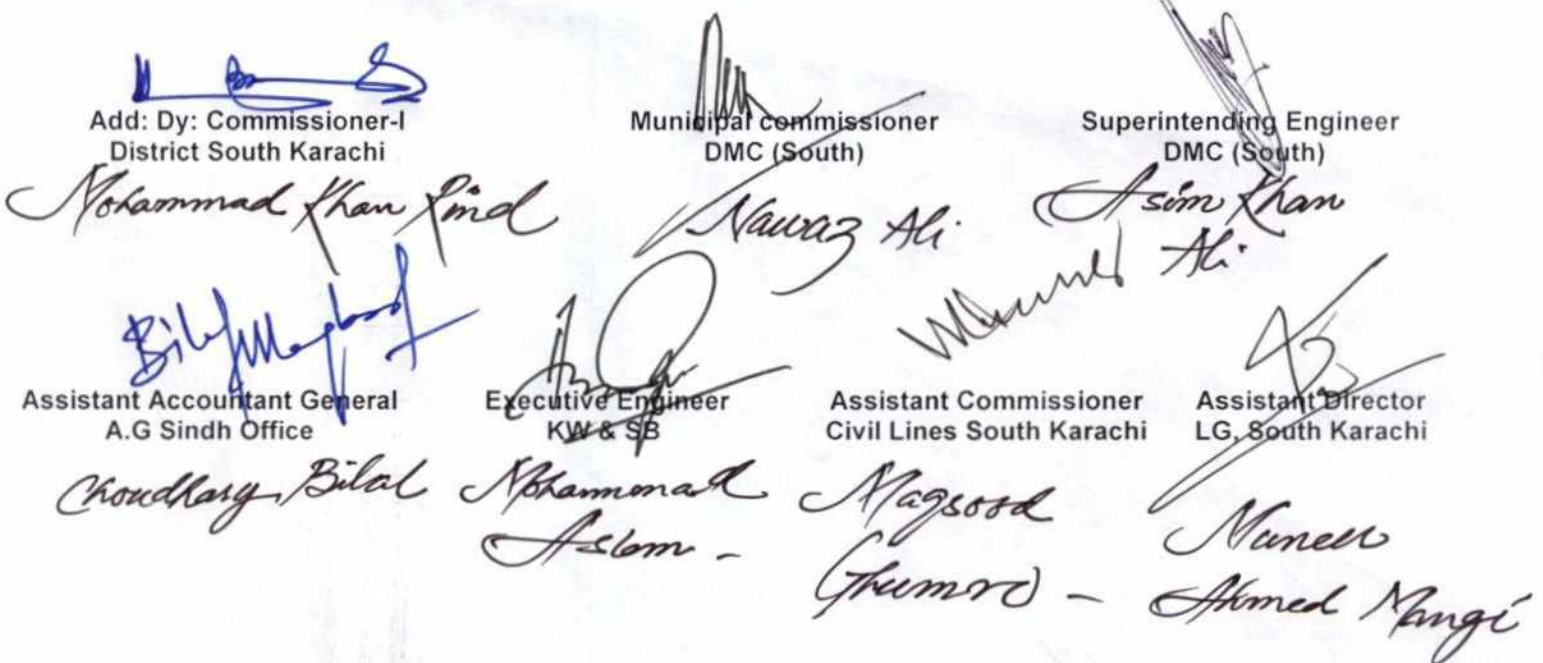 Add: Dy: Commissioner-I
District South Karachi
Mohammad Khan Rind
Municipal commissioner
DMC (South)
Nawaz Ali
Superintending Engineer
DMC (South)
Asim Khan
Ali
Assistant Accountant General
A.G Sindh Office
Choudhary Bilal
Executive Engineer
KW & SB
Mohammad
Aslam -
Assistant Commissioner
Civil Lines South Karachi
Maqsood
Ghumro -
Assistant Director
LG, South Karachi
Muneer
Ahmed Mangi